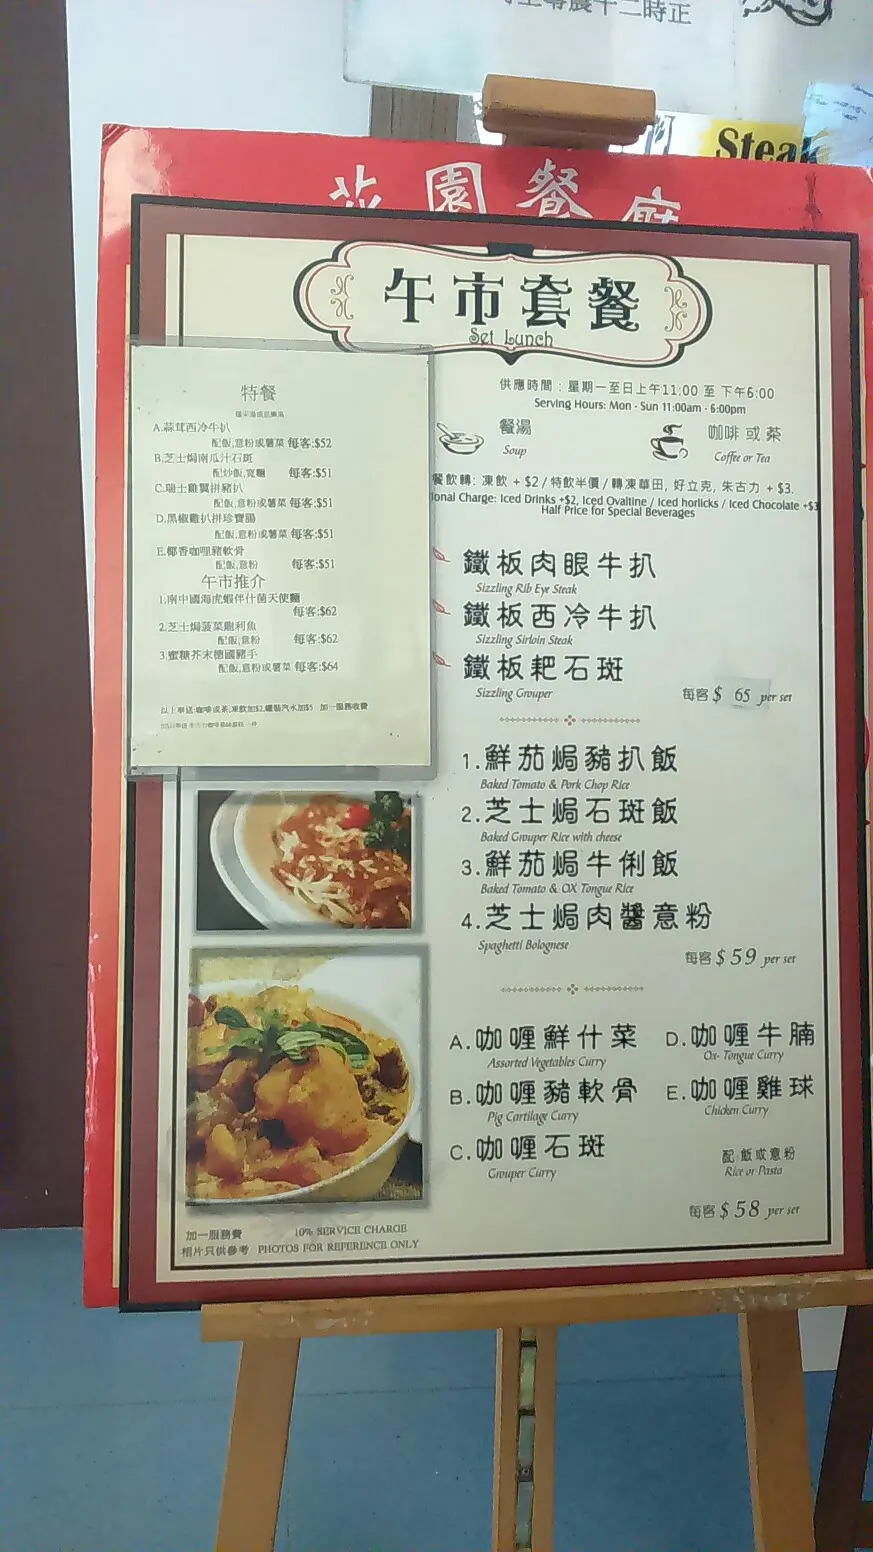 十二時正
Steak
花園餐廳
午市套餐
Set Lunch
特餐
A.蒜茸西冷牛扒
配飯,意粉或薯菜 每客:$52
B.芝士焗南瓜汁石斑
配炒飯,寬麵 每客:$51
C.瑞士雞翼拼豬扒
配飯,意粉或薯菜 每客:$51
D.黑椒雞扒拼珍寶腸
配飯,意粉或薯菜 每客:$51
E.椰香咖哩豬軟骨
配飯,意粉 每客:$51
午市推介
1.南中國海虎蝦伴什菌天使麵
每客:$62
2.芝士焗菠菜龍利魚
配飯,意粉 每客:$62
3.蜜糖芥末德國豬手
配飯,意粉或薯菜 每客:$64
以上單送:咖啡或茶,凍飲加$2,罐裝汽水加$5 加一服務收費
供應時間 : 星期一至日上午11:00 至 下午6:00
Serving Hours: Mon - Sun 11:00am - 6:00pm
餐湯
Soup
咖啡 或 茶
Coffee or Tea
餐飲轉: 凍飲 + $2 / 特飲半價 / 轉凍華田, 好立克, 朱古力 + $3.
ional Charge: Iced Drinks +$2, Iced Ovaltine / Iced horlicks / Iced Chocolate +$3
Half Price for Special Beverages
鐵板肉眼牛扒
Sizzling Rib Eye Steak
鐵板西冷牛扒
Sizzling Sirloin Steak
鐵板耙石斑
Sizzling Grouper
每客 $ 65 per set
1.鮮茄焗豬扒飯
Baked Tomato & Pork Chop Rice
2.芝士焗石斑飯
Baked Grouper Rice with cheese
3.鮮茄焗牛脷飯
Baked Tomato & OX Tongue Rice
4.芝士焗肉醬意粉
Spaghetti Bolognese
每客 $ 59 per set
A.咖喱鮮什菜
Assorted Vegetables Curry
B.咖喱豬軟骨
Pig Cartilage Curry
C.咖喱石斑
Grouper Curry
D.咖喱牛腩
Ox- Tongue Curry
E.咖喱雞球
Chicken Curry
配 飯 或 意 粉
Rice or Pasta
每客 $ 58 per set
加一服務費 10% SERVICE CHARGE
相片只供參考 PHOTOS FOR REFERENCE ONLY